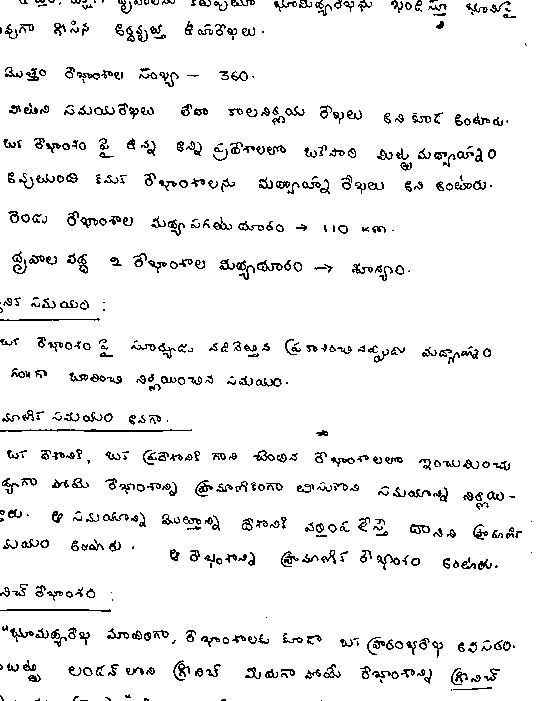 గా గీసిన అర్ధవృత్త ఊహారేఖలు.
మొత్తం రేఖాంశాల సంఖ్య – 360.
వీటిని సమయరేఖలు లేదా కాలనిర్ణయ రేఖలు అని కూడ అంటారు.
ఒక రేఖాంశం పై ఉన్న అన్ని ప్రదేశాలలో ఒకేసారి మిట్టమధ్యాహ్నం
అవుతుంది కనుక రేఖాంశాలను మధ్యాహ్న రేఖలు అని అంటారు.
రెండు రేఖాంశాల మధ్య సగటు దూరం → 110 km.
ధ్రువాల వద్ద 2 రేఖాంశాల మధ్యదూరం → శూన్యం.
సమయం :
ఒక రేఖాంశం పై సూర్యుడు నడినెత్తిన ప్రకాశించినప్పుడు మధ్యాహ్నం
గంటగా భావించి నిర్ణయించిన సమయం.
సమయం అనగా.
ఒక దేశానికి, ఒక ప్రదేశానికి గాని చెందిన రేఖాంశాలలో ఇంచుమించు
గా పోయే రేఖాంశాన్ని ప్రామాణికంగా తీసుకొని సమయాన్ని నిర్ణయి-
ఆ సమయాన్ని మొత్తాన్ని దేశానికి వర్తింప చేస్తే దానిని ప్రామాణిక
సమయం అంటారు. ఆ రేఖాంశాన్ని ప్రామాణిక రేఖాంశం అంటారు.
రేఖాంశం :
"భూమధ్యరేఖ మాదిరిగా, రేఖాంశాలకు కూడా ఒక ప్రారంభరేఖ అవసరం.
లండన్ లోని గ్రీనిచ్ మీదుగా పోయే రేఖాంశాన్ని గ్రీనిచ్